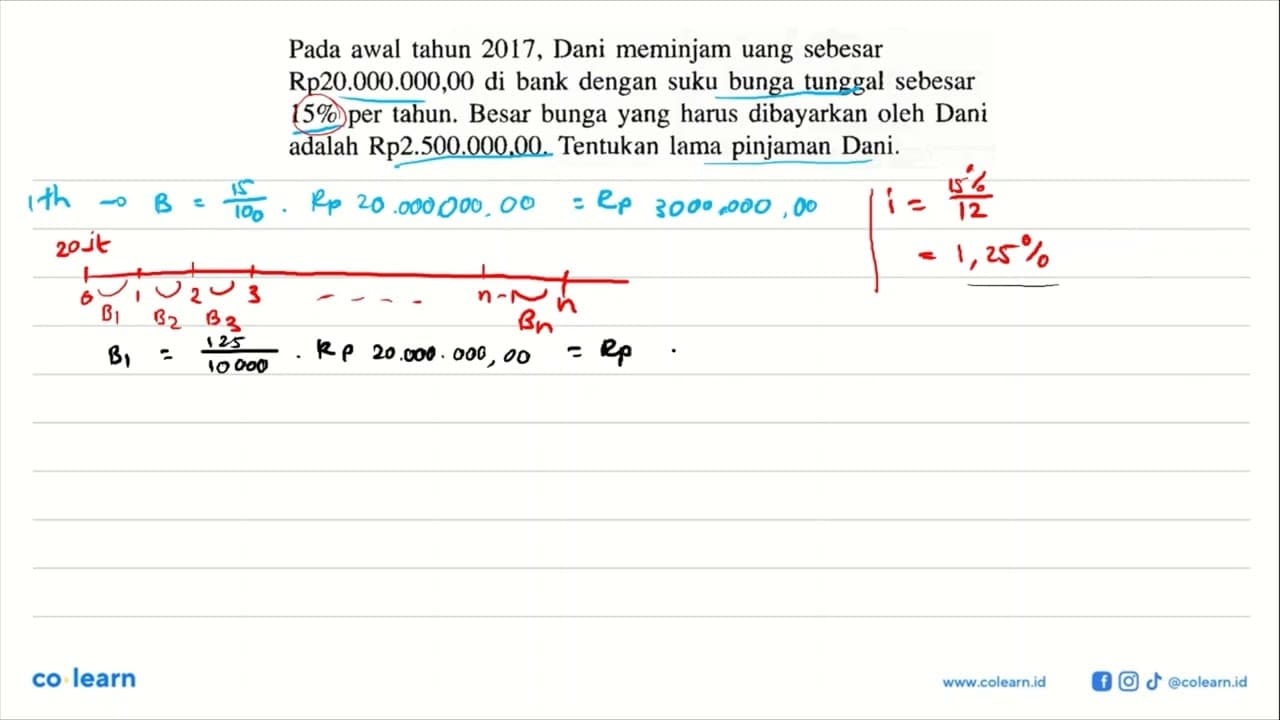 Pada awal tahun 2017, Dani meminjam uang sebesar
Rp20.000.000,00 di bank dengan suku bunga tunggal sebesar
15% per tahun. Besar bunga yang harus dibayarkan oleh Dani
adalah Rp2.500.000,00. Tentukan lama pinjaman Dani.
1 th → B = 15/100 . Rp 20.000.000,00 = Rp 3000.000,00
i = 15%/12
= 1,25%
20 jt
0 1 2 3 ---- n-1 n
B1 B2 B3 Bn
B1 = 125/10000 . Rp 20.000.000,00 = Rp .
co·learn
www.colearn.id
@colearn.id